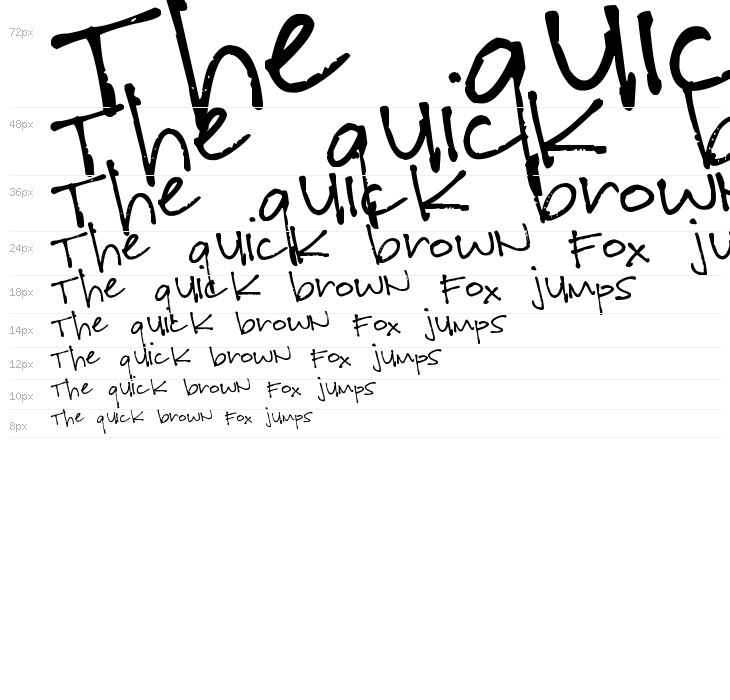 72px The quic
48px The quick b
36px The quick brown
24px The quick brown Fox ju
18px The quick brown Fox jumps
14px The quick brown Fox jumps
12px The quick brown Fox jumps
10px The quick brown Fox jumps
8px The quick brown Fox jumps